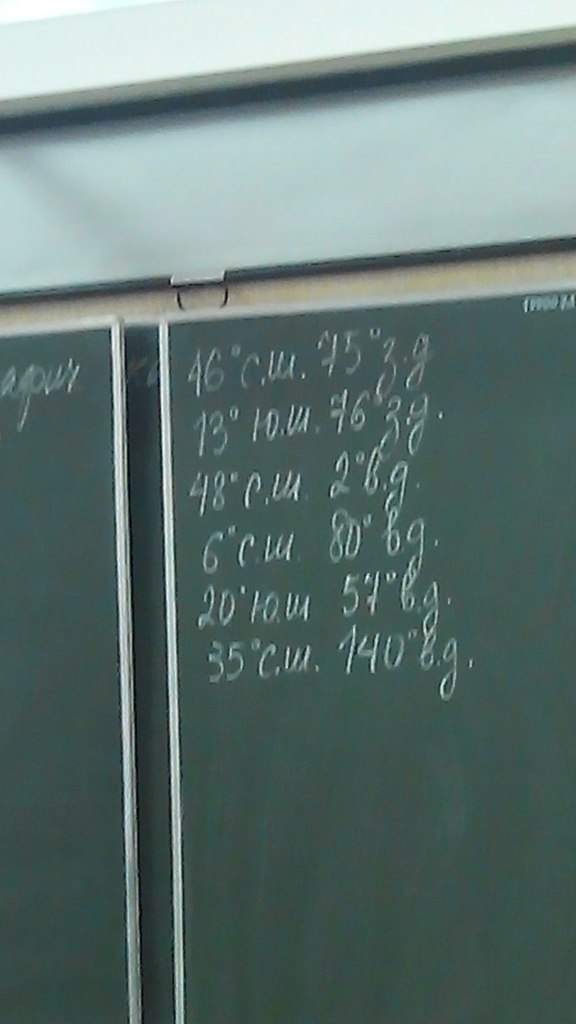 46° с.ш. 75° з.д
13° ю.ш. 76° з.д.
48° с.ш. 2° в.д.
6° с.ш. 80° в.д.
20° ю.ш 57° в.д.
35° с.ш. 140° в.д.